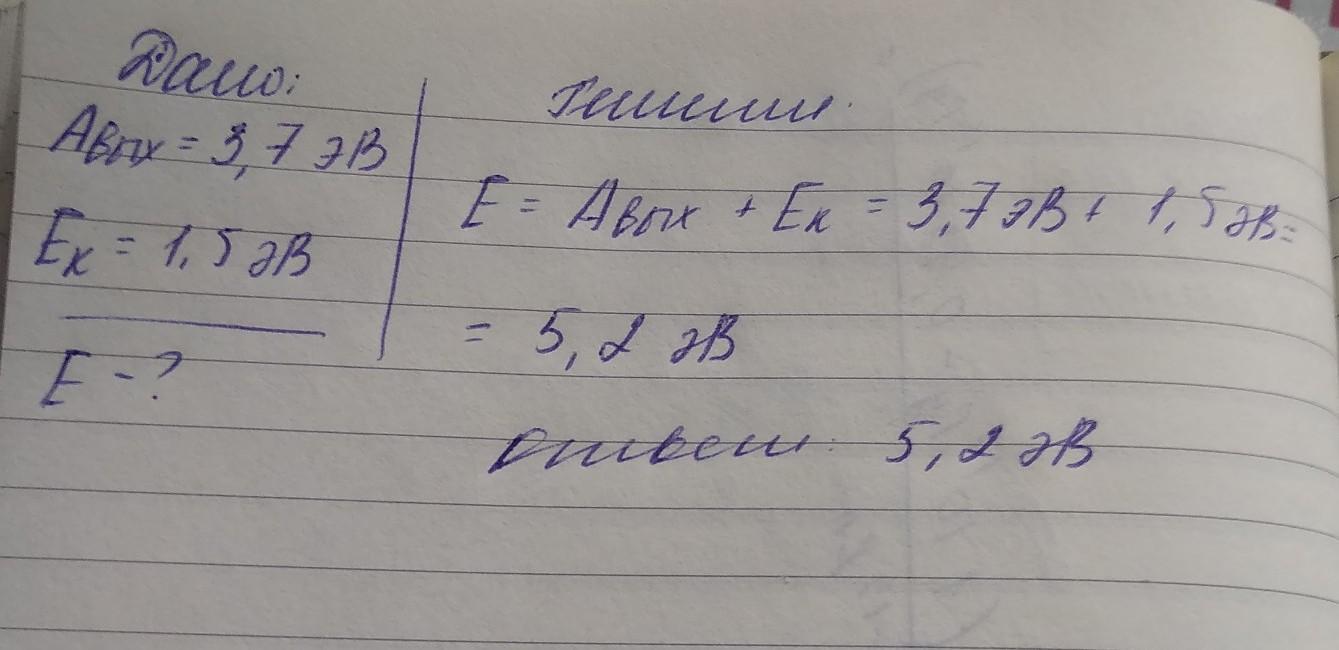 Дано:
Aвых = 3,7 эВ
Eк = 1,5 эВ
E - ?
Решение.
E = Aвых + Eк = 3,7 эВ + 1,5 эВ =
= 5,2 эВ
Ответ: 5,2 эВ